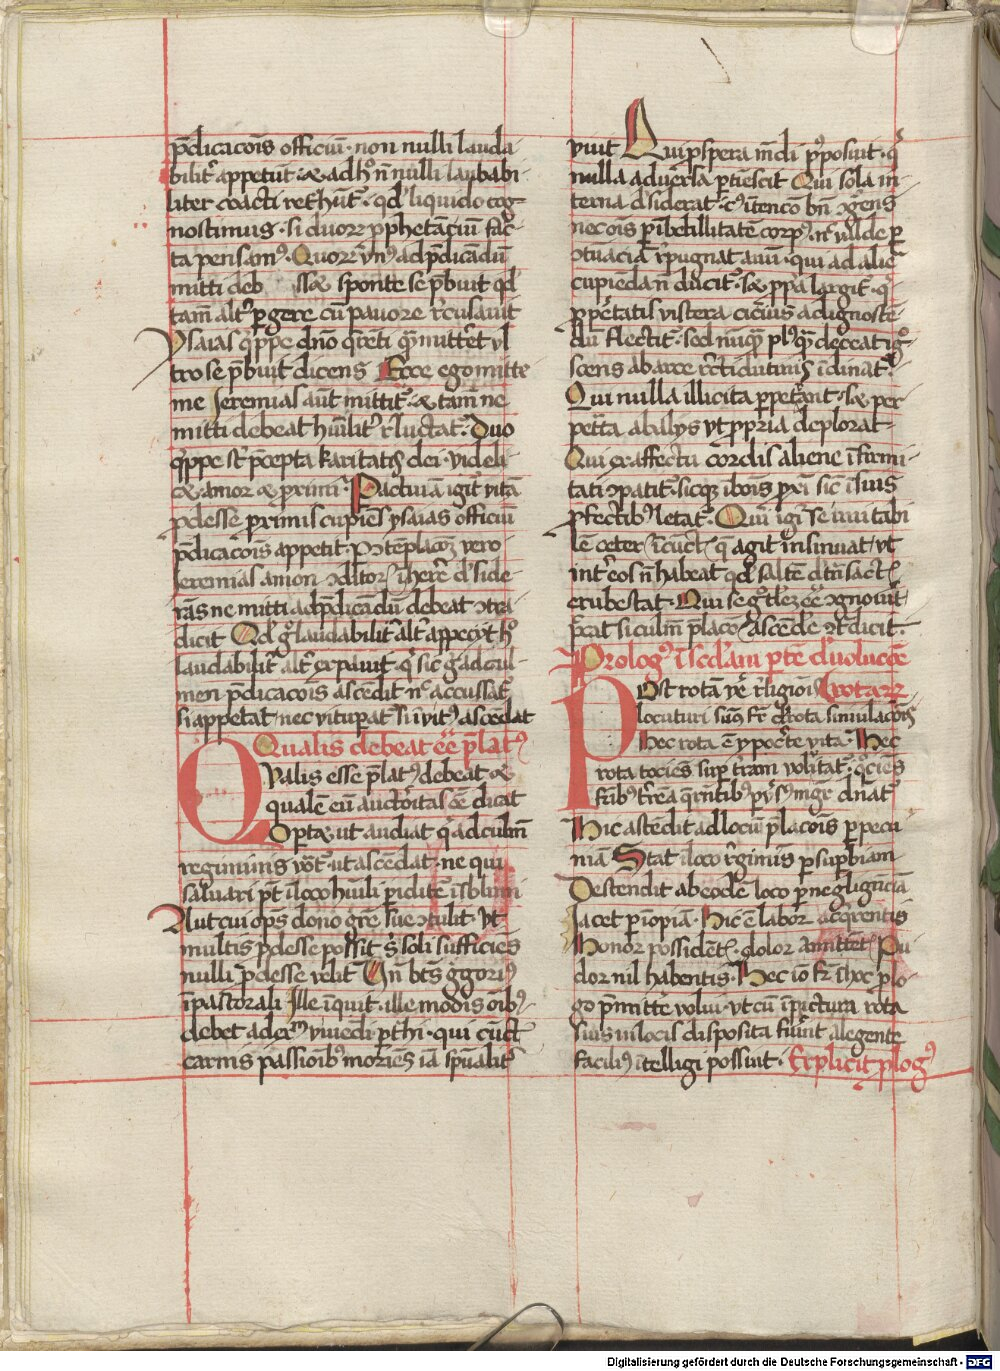 p̄dicacōis officiū · non nulli lauda
bilit᷑ appetūt · ⁊ adhͦ n̄ nulli laubabi
liter coacti
nostimus · si duoꝝ ꝓphetanciū fac̄
ta pensamꝰ · Quoꝝ vnꝰ ad p̄dicādū
mitti deb sponte se p̄buit qd᷑
tam̄ alt᷑ ꝑgere cū pauore r̄cusauit
Ysaias q̈ppe dn̄o q̄renti quē mittet vl
tro se p̄buit dicens Ecce ego mitte
me Jeremias aūt mittit᷑ · ⁊ tam̄ ne
mitti debeat hūilit᷑ r̄luctat᷑ · Duo
q̈ppe st̄ p̄cepta karitatis dei · videli
⁊ amor ⁊ primi · Pactiuā igit᷑ vitā
ꝓdesse ꝓximis cupiēs ysaias officiū
p̄dicacōis appetit · ꝑ ꝯtēplacōꝫ vero
Jeremias amori ꝯditoris īherē d᷑side
rās ne mitti ad p̄dicādū debeat ꝯtra
dicit Qd᷑ gͦ laudabilit᷑ alt᷑ appecyt hͦ
laudabilit᷑ alt᷑ expauit · q̇ sic ḡ ad cul
men p̄dicacōis ascēdit n̄c accussat᷑
si appetat · nec vituperat᷑ si īvitꝰ ascēdat
Qualis debeat eē p̄latꝰ
Qvalis esse p̄latꝰ debeat ⁊
qualē eū auctōritas eē dicat
Optꝫ ut audiat q̇ ad culm̄
regiminis vōt᷑ · ut ascēdat · ne qui
saluari pt̄ ī loco hūili ꝑiditet᷑ ī sblimi
Aut cui ops̄ dono gr̄e sue ꝯtulit · vt
multis ꝓdesse possit · s̄ soli sufficies
nulli ꝓdesse velit Vn̄ bt̄s g̈goriꝰ
ī pastorali Ille īquit · ille modis oībꝰ
debet ad exm̄ viuēdi ꝑthi · qui cūct᷑
carnis passioībꝰ moriēs iā spūalit᷑
viuit Qui ꝓspera mūdi p̄posuit · q̇
nulla aduersa ꝑtiescit Qui sola in
terna d᷑siderat · cꝰ ītencōi bn̄ ꝯgens
nec oīs ꝑ ībecillitatē corpꝰ nc̄ valde ꝑ
ꝯtuaciā r̄pugnat aīni · qui ad aliēa
cupiēda n̄ ducit᷑ · sꝫ ꝓp̄a largit᷑ · q̇
ꝑ pietatis viscera ciciꝰ ad ignoscē
dū flectit᷑ · sed nūq̄ plꝰ q̄ deceat ig̊
scens ab arce r̄ctitudinis īclinat᷑
Qui nulla illicita ꝑpetrāt · sꝫ per
petrata ab alijs vt ꝓpria deplorat
Qui ex affectu cordis aliene īfirmi
tati ꝯpatit᷑ · sicqꝫ ī bois ꝓxi sic̄ ī suis
ꝓfectibꝰ letat᷑ · Qui igi᷑ se imitabi
lē ceteris ī cunctis q̄ agit īsinuat · vt
int᷑ eos n̄ habeat qd᷑ saltē d᷑ trāsact᷑
erubescat · Qui se gͦ tlēꝫ eē ꝯgnouit
p̄cat si culm̄ p̄lacōis ascēde ꝯt᷑dicit᷑ ·
Prologꝰ ī scd᷑am ꝑtē d᷑uolucōe
Post rotā ve᷑ r̄ligiois rotaꝝ
locuturi sumꝰ fr̄ d᷑ rota simulacōis
Hec rota ē ypoc̈te vita · Hec
rota tocies suꝑ t᷑ram volitat᷑ · q̊cies
fr̄ibꝰ trēa q̄rentibꝰ
Hic ascēdit ad locū p̄lacōis ꝑ pecu
niā Stat ī loco r̄giminis ꝑ suꝑbiam
Descendit ab eodē loco ꝑ negligēciā
Jacet ꝑ īopiā · Hic ē labor acq̇rentis
Honor possidēt᷑ · dolor amittēt᷑ · Pu
dor nil habentis · Hec iō fr̄ ī hoc ꝓlo
go p̄mittē volui · vt cū ī pictura rota
suis in locis disposita fūit · a legente
faciliꝰ ītelligi possint · Explicit ꝓlogꝰ
Digitalisierung gefördert durch die Deutsche Forschungsgemeinschaft - DFG